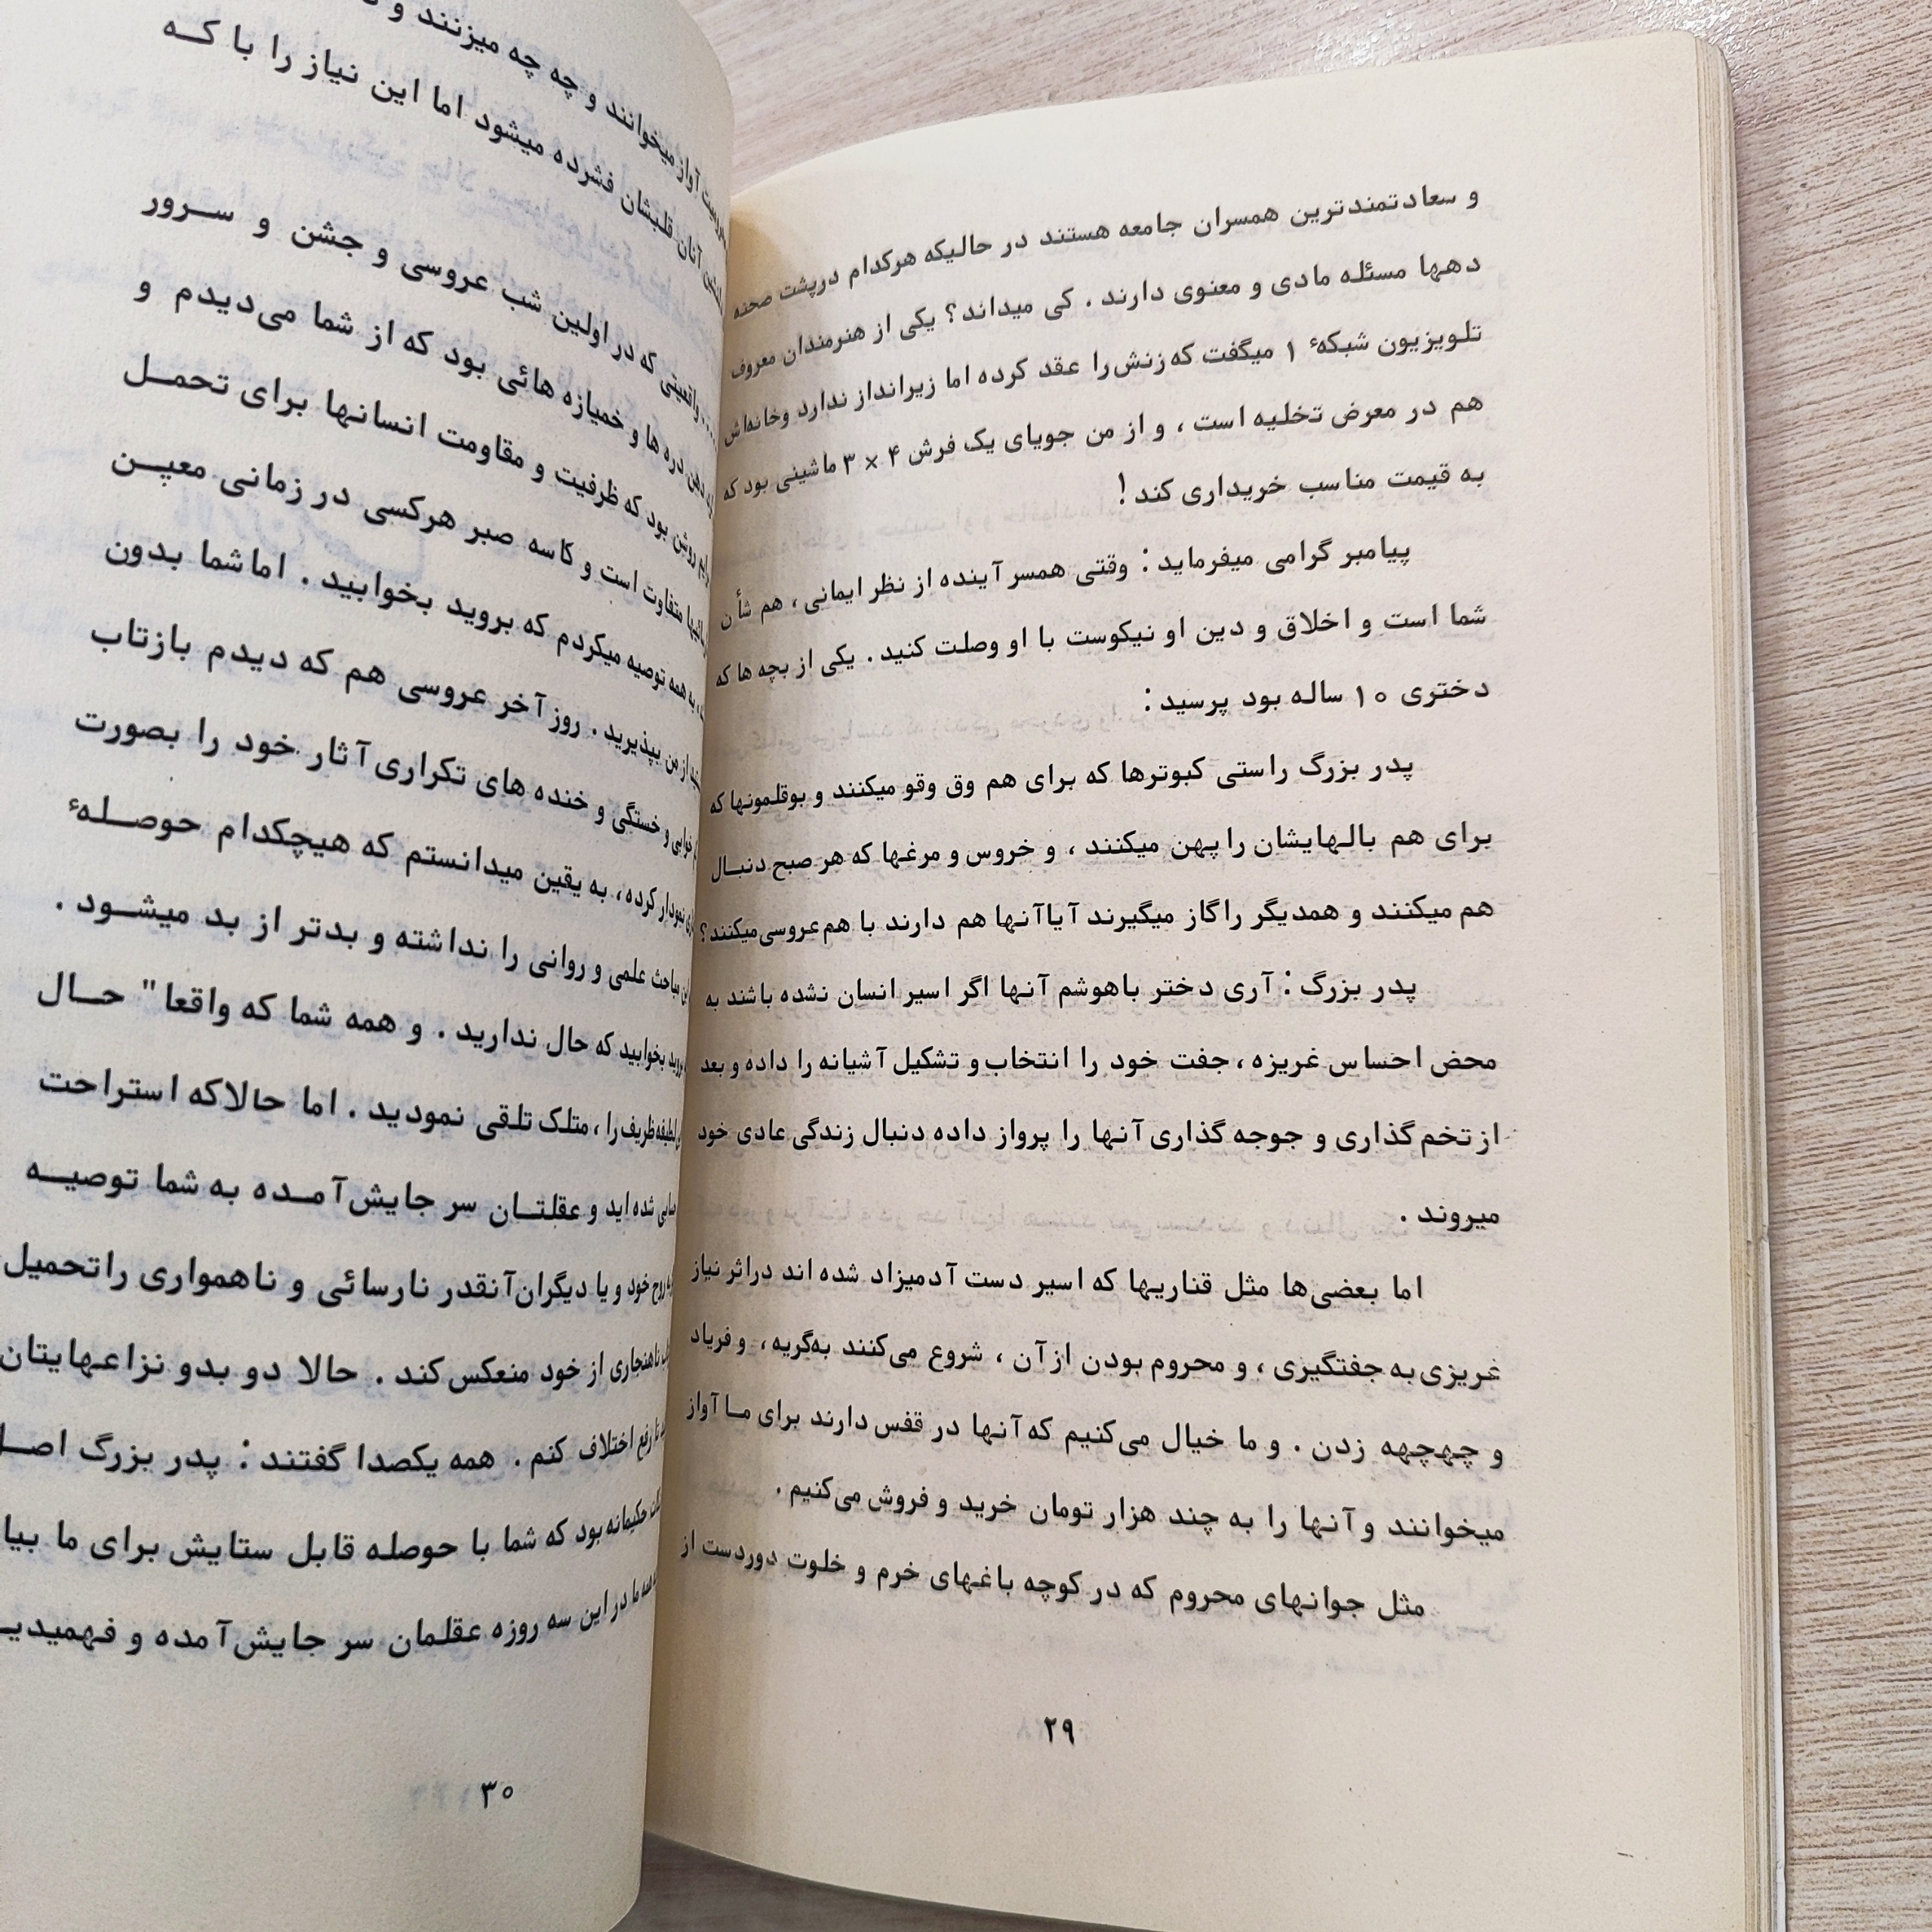 و سعادتمندترین همسران جامعه هستند در حالیکه هرکدام درپشت صحنه
دهها مسئله مادی و معنوی دارند . کی میداند ؟ یکی از هنرمندان معروف
تلویزیون شبکهٔ ۱ میگفت که زنش را عقد کرده اما زیرانداز ندارد وخانه‌اش
هم در معرض تخلیه است ، و از من جویای یک فرش ۴ × ۳ ماشینی بود که
به قیمت مناسب خریداری کند !
پیامبر گرامی میفرماید : وقتی همسر آینده از نظر ایمانی ، هم شأن
شما است و اخلاق و دین او نیکوست با او وصلت کنید . یکی از بچه ها که
دختری ۱۰ ساله بود پرسید :
پدر بزرگ راستی کبوترها که برای هم وق وقو میکنند و بوقلمونها که
برای هم بالهایشان را پهن میکنند ، و خروس و مرغها که هر صبح دنبال
هم میکنند و همدیگر را گاز میگیرند آیا آنها هم دارند با هم عروسی میکنند ؟
پدر بزرگ : آری دختر باهوشم آنها اگر اسیر انسان نشده باشند به
محض احساس غریزه ، جفت خود را انتخاب و تشکیل آشیانه را داده و بعد
از تخم گذاری و جوجه گذاری آنها را پرواز داده دنبال زندگی عادی خود
میروند .
اما بعضی‌ها مثل قناریها که اسیر دست آدمیزاد شده اند دراثر نیاز
غریزی به جفتگیری ، و محروم بودن از آن ، شروع می‌کنند به‌گریه ، و فریاد
و چهچهه زدن . و ما خیال می‌کنیم که آنها در قفس دارند برای مـا آواز
میخوانند و آنها را به چند هزار تومان خرید و فروش می‌کنیم .
مثل جوانهای محروم که در کوچه باغهای خرم و خلوت دوردست از
۲۹
آواز میخوانند و چه چه میزنند و
آنان قلبشان فشرده میشود اما این نیاز را با کـه
واقعیتی که در اولین شب عروسی و جشن و سـرور
دهن دره ها و خمیازه هائی بود که از شما می‌دیدم و
روشن بود که ظرفیت و مقاومت انسانها برای تحمـل
متفاوت است و کاسه صبر هرکسی در زمانی معیـن
به همه توصیه میکردم که بروید بخوابید . اما شما بدون
از من بپذیرید . روز آخر عروسی هم که دیدم بازتاب
خوابی و خستگی و خنده های تکراری آثار خود را بصورت
نمودار کرده ، به یقین میدانستم که هیچکدام حوصـلهٔ
مباحث علمی و روانی را نداشته و بدتر از بد میشـود .
بروید بخوابید که حال ندارید . و همه شما که واقعا" حـال
لطیفه ظریف را ، متلک تلقی نمودید . اما حالا که استراحت
شده اید و عقلتـان سر جایش آمـده به شما توصیـه
روح خود و یا دیگران آنقدر نارسائی و ناهمواری را تحمیل
ناهنجاری از خود منعکس کند . حالا دو بدو نزاعهایتان
تا رفع اختلاف کنم . همه یکصدا گفتند : پدر بزرگ
حکیمانه بود که شما با حوصله قابل ستایش برای ما
ما در این سه روزه عقلمان سر جایش آمده و
۳۰